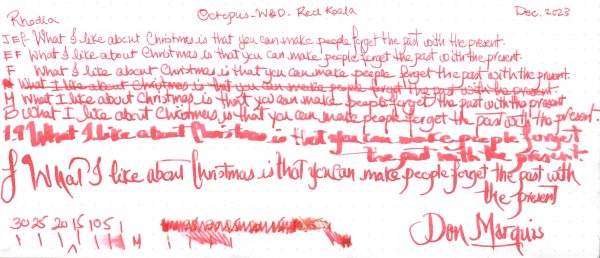 Rhodia Octopus-W&D-Red Koala Dec. 2023
JEF- What I like about Christmas is that you can make people forget the past with the present.
EF What I like about Christmas is that you can make people forget the past with the present.
F What I like about Christmas is that you can make people forget the past with the present.
What I like about Christmas is that you can make people forget the past with the present.
M What I like about Christmas is that you can make people forget the past with the present.
B What I like about Christmas is that you can make people forget the past with the present.
1.9 What I like about Christmas is that you can make people forget
the past with the present.
J What I like about Christmas is that you can make people forget the past with
the present
30 25 20 15 10 5 1
M
Don Marquis